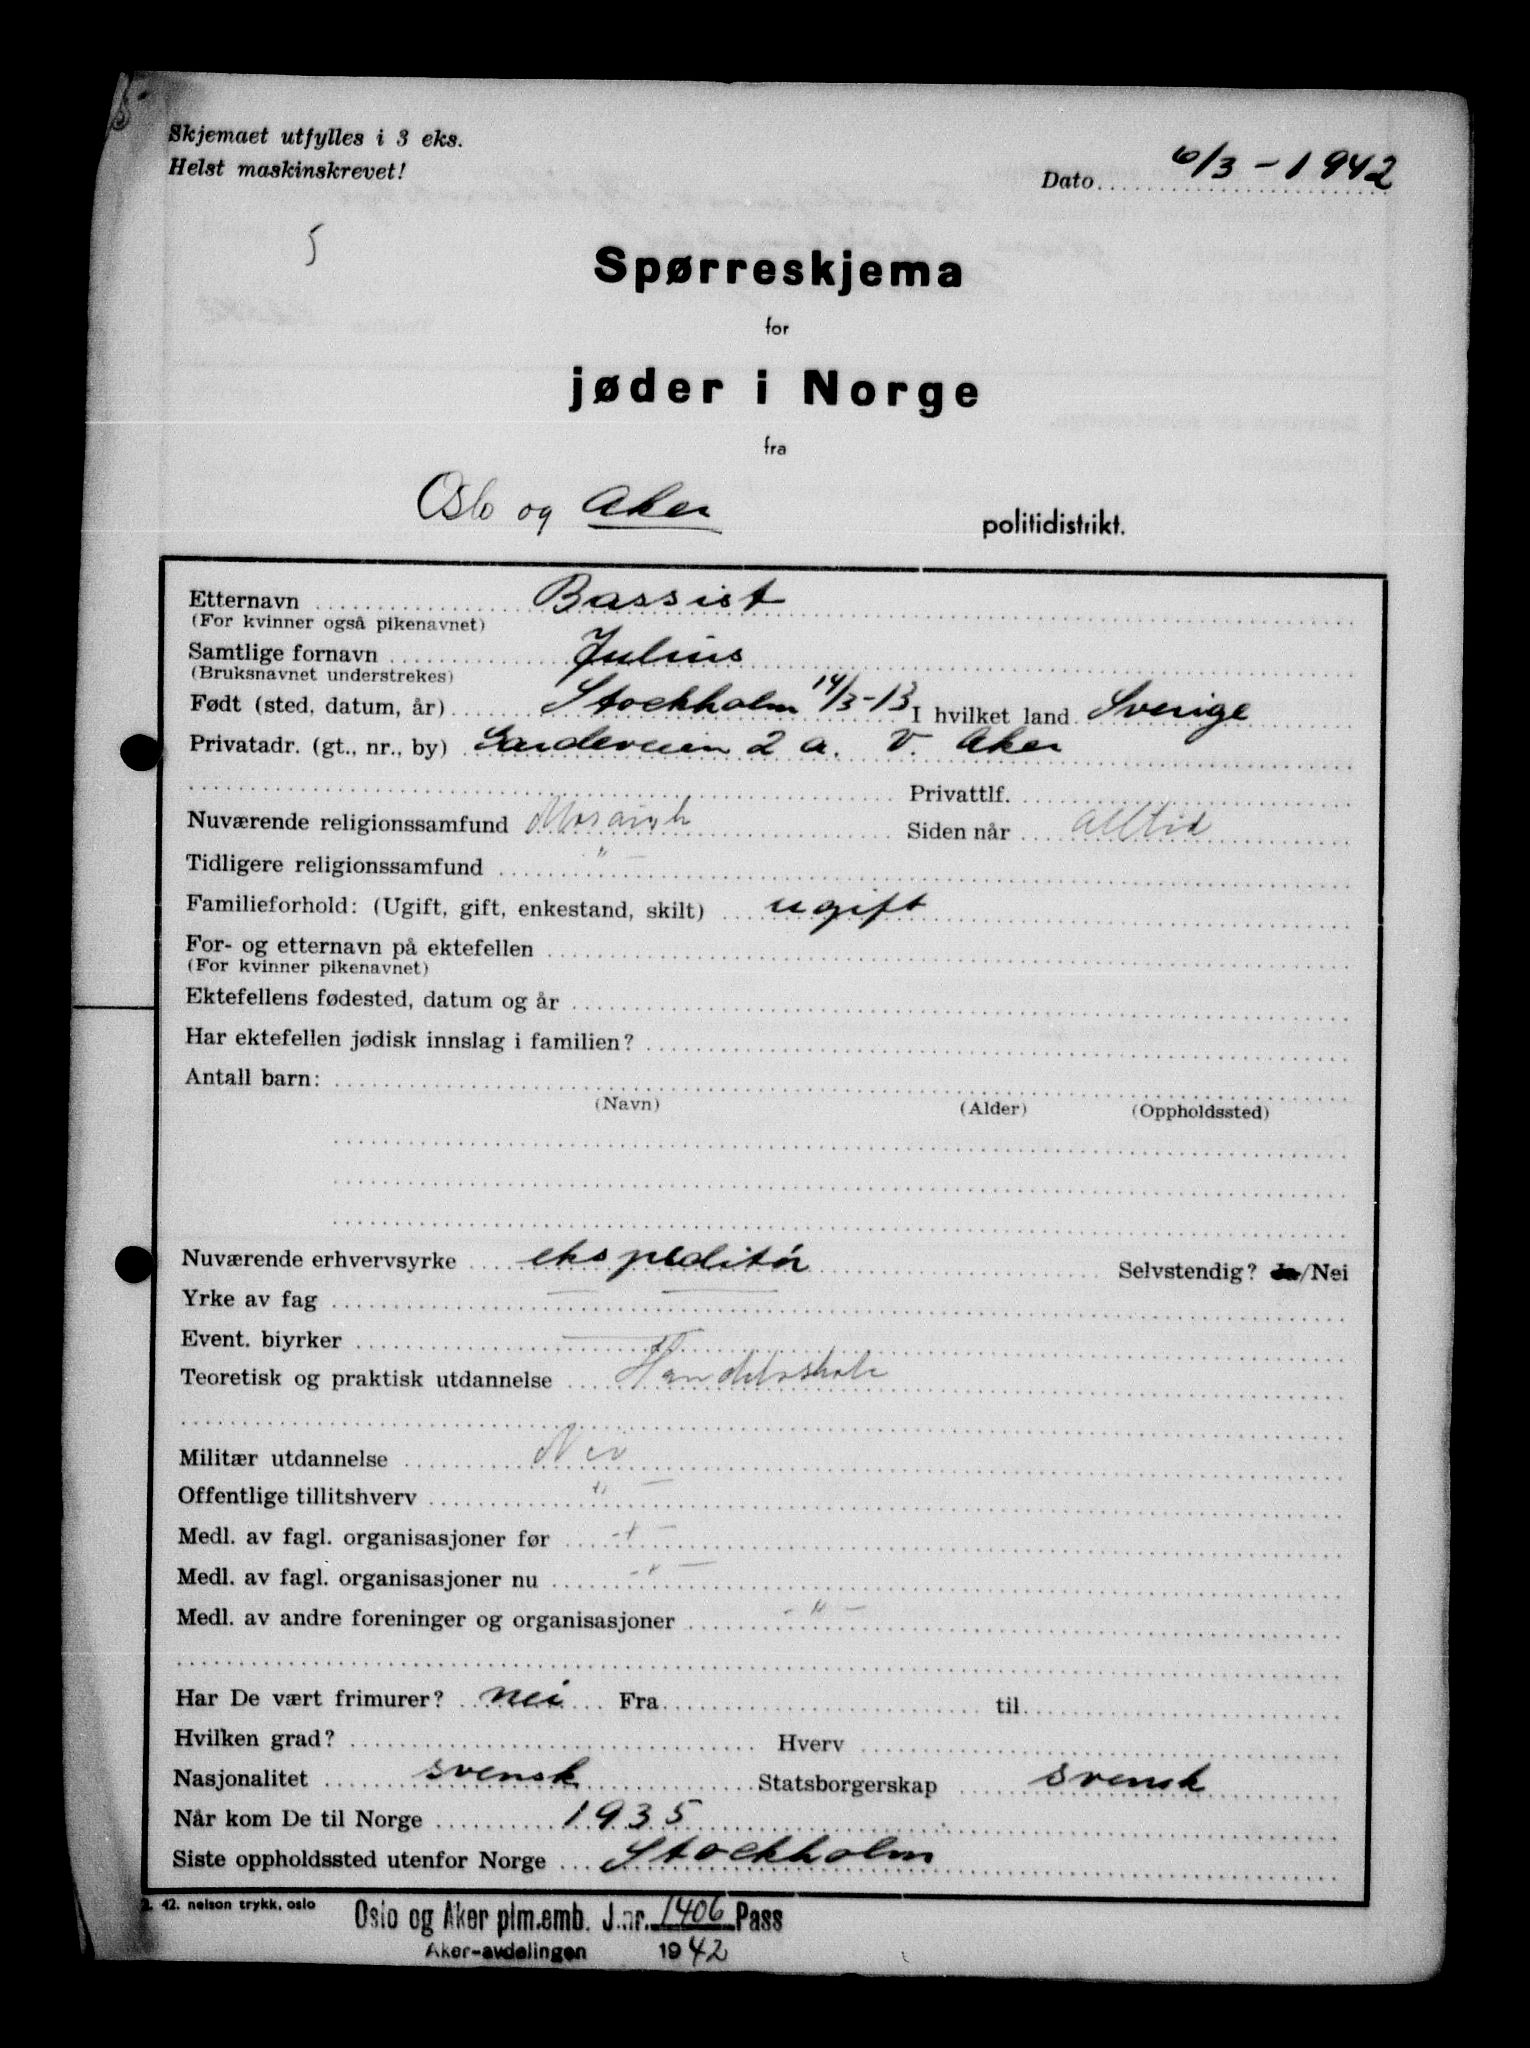 Skjemaet utfylles i 3 eks.
Helst maskinskrevet!
Dato 6/3 - 1942
5
Spørreskjema
for
jøder i Norge
fra
Oslo og Aker politidistrikt.
Etternavn Bassist
(For kvinner også pikenavnet)
Samtlige fornavn Julius
(Bruksnavnet understrekes)
Født (sted, datum, år) Stockholm 14/3-13 I hvilket land Sverige
Privatadr. (gt., nr., by) 2 a. V. Aker
Privattlf.
Nuværende religionssamfund Mosaisk Siden når alltid
Tidligere religionssamfund " —
Familieforhold: (Ugift, gift, enkestand, skilt) ugift
For- og etternavn på ektefellen
(For kvinner pikenavnet)
Ektefellens fødested, datum og år
Har ektefellen jødisk innslag i familien?
Antall barn:
(Navn) (Alder) (Oppholdssted)
Nuværende erhvervsyrke ekspeditør Selvstendig? Ja/Nei
Yrke av fag — —
Event. biyrker —
Teoretisk og praktisk utdannelse Handelsskole
Militær utdannelse Nei
Offentlige tillitshverv " —
Medl. av fagl. organisasjoner før - " —
Medl. av fagl. organisasjoner nu - " —
Medl. av andre foreninger og organisasjoner - " —
Har De vært frimurer? nei Fra til
Hvilken grad? Hverv
Nasjonalitet svensk Statsborgerskap svensk
Når kom De til Norge 1935
Siste oppholdssted utenfor Norge Stockholm
2. 42. nelson trykk, oslo
Oslo og Aker plm.emb. J.nr. 1406 Pass
Aker-avdelingen 1942